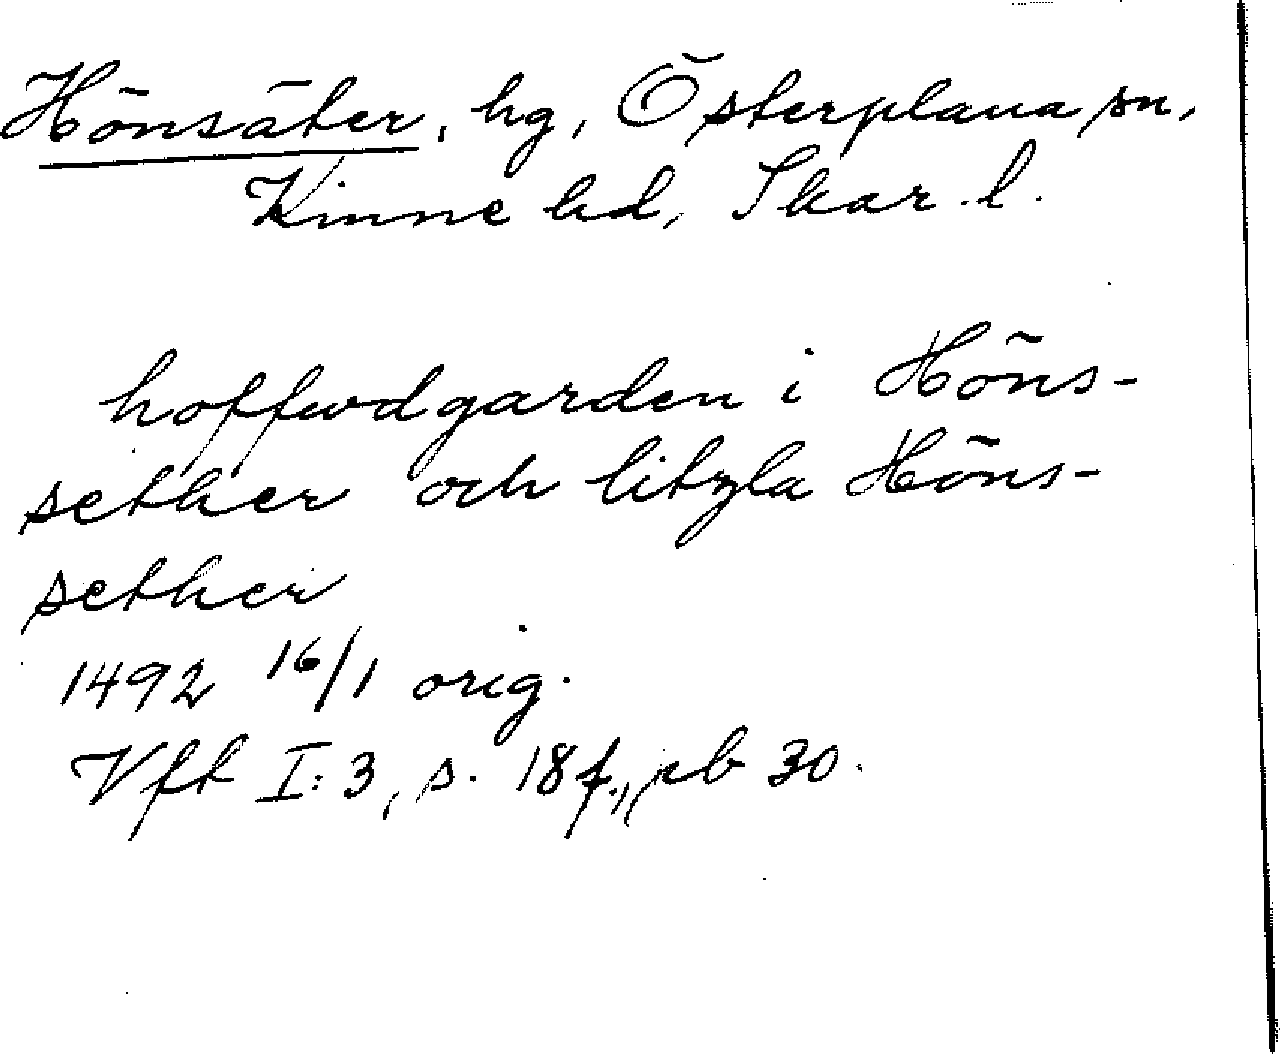 Hönsäter, hg, Österplana sn,
Kinne hd, Skar. l.
hoffwdgarden i Höns-
sether och litzla Höns-
sether
1492 16/1 orig.
Vft I:3, s. 18f., nb 30.